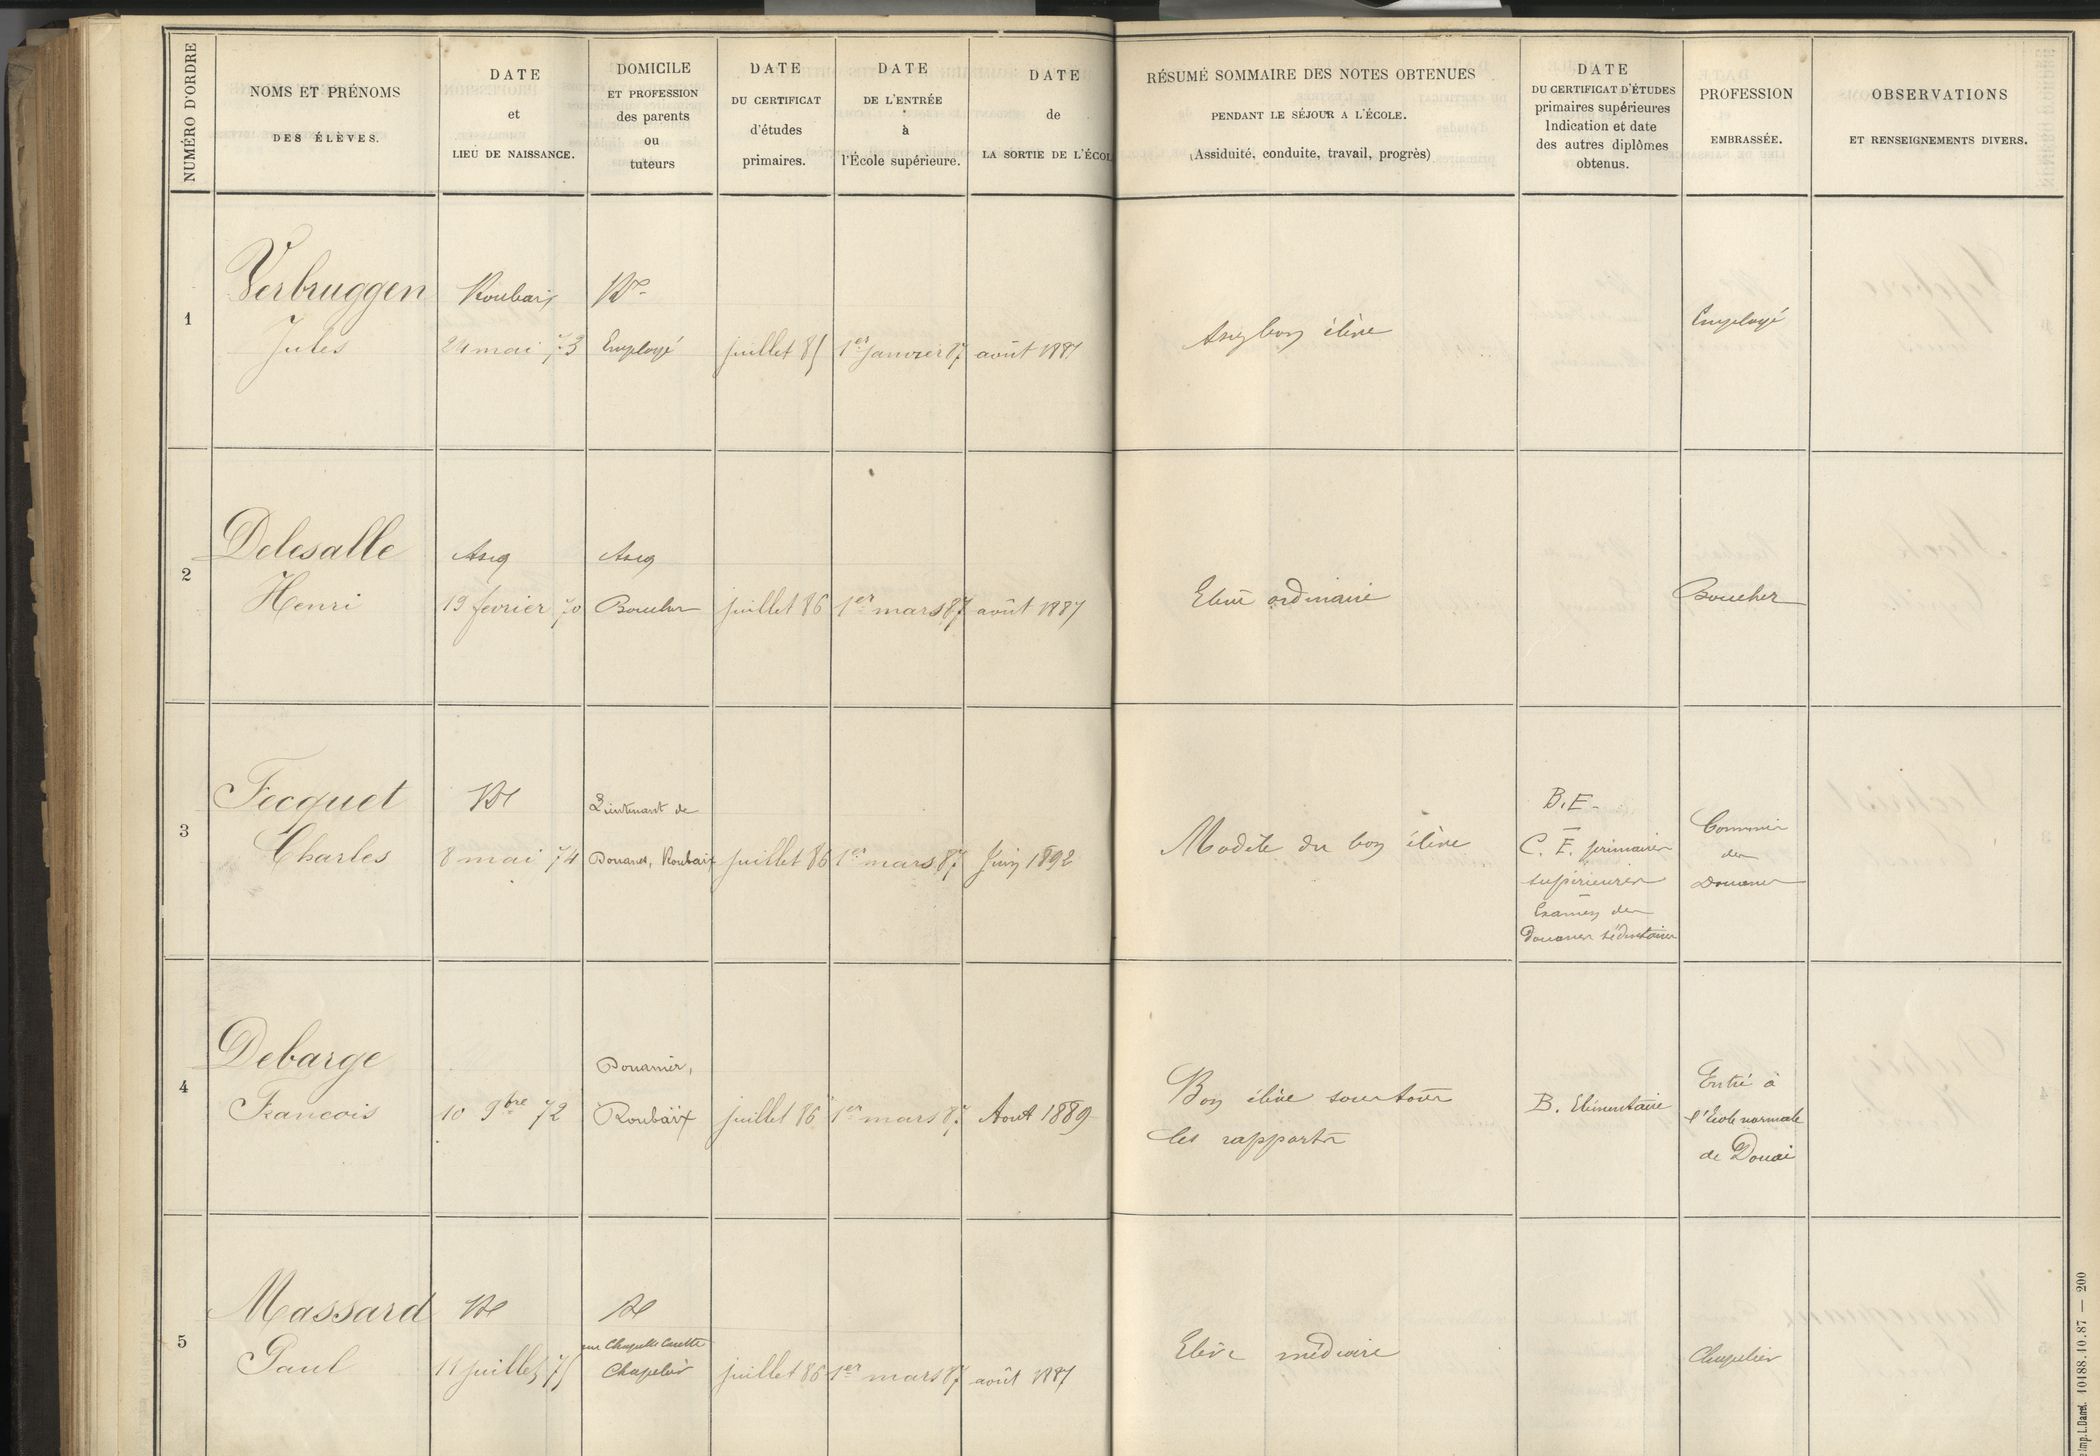 NUMÉRO D'ORDRE
NOMS ET PRÉNOMS
DES ÉLÈVES.
DATE
et
LIEU DE NAISSANCE.
DOMICILE
ET PROFESSION
des parents
ou
tuteurs
DATE
DU CERTIFICAT
d'études
primaires.
DATE
DE L'ENTRÉE
à
l'École supérieure.
DATE
de
LA SORTIE DE L'ÉCOL
RÉSUMÉ SOMMAIRE DES NOTES OBTENUES
PENDANT LE SÉJOUR A L'ÉCOLE.
(Assiduité, conduite, travail, progrès)
DATE
DU CERTIFICAT D'ÉTUDES
primaires supérieures
Indication et date
des autres diplômes
obtenus.
PROFESSION
EMBRASSÉE.
OBSERVATIONS
ET RENSEIGNEMENTS DIVERS.
1
Verbruggen
Jules
Roubaix
24 mai 73
Employé
juillet 85
1er janvier 87
août 1887
Assez bon élève
Employé
2
Delesalle
Henri
Ascq
19 février 70
Ascq
Boucher
juillet 86
1er mars 87
août 1887
Elève ordinaire
Boucher
3
Fecquet
Charles
8 mai 74
Lieutenant de
Douanes, Roubaix
juillet 86
1er mars 87
Juin 1892
Modèle du bon élève
B.E.
C. E. primaires
supérieures
Examen des
Douanes sédentaires
Commis
des
Douanes
4
Debarge
Francois
10 9bre 72
Douanier,
Roubaix
juillet 86
1er mars 87
Aout 1889
Bon élève sous tous
les rapports
B. Elémentaire
Entré à
l'Ecole normale
de Douai
5
Massard
Paul
11 juillet 75
rue Chapelle Carette
Chapelier
juillet 86
1er mars 87
août 1887
Elève médiocre
Chapelier
Imp. L. Danel. 10188.10.87 — 200